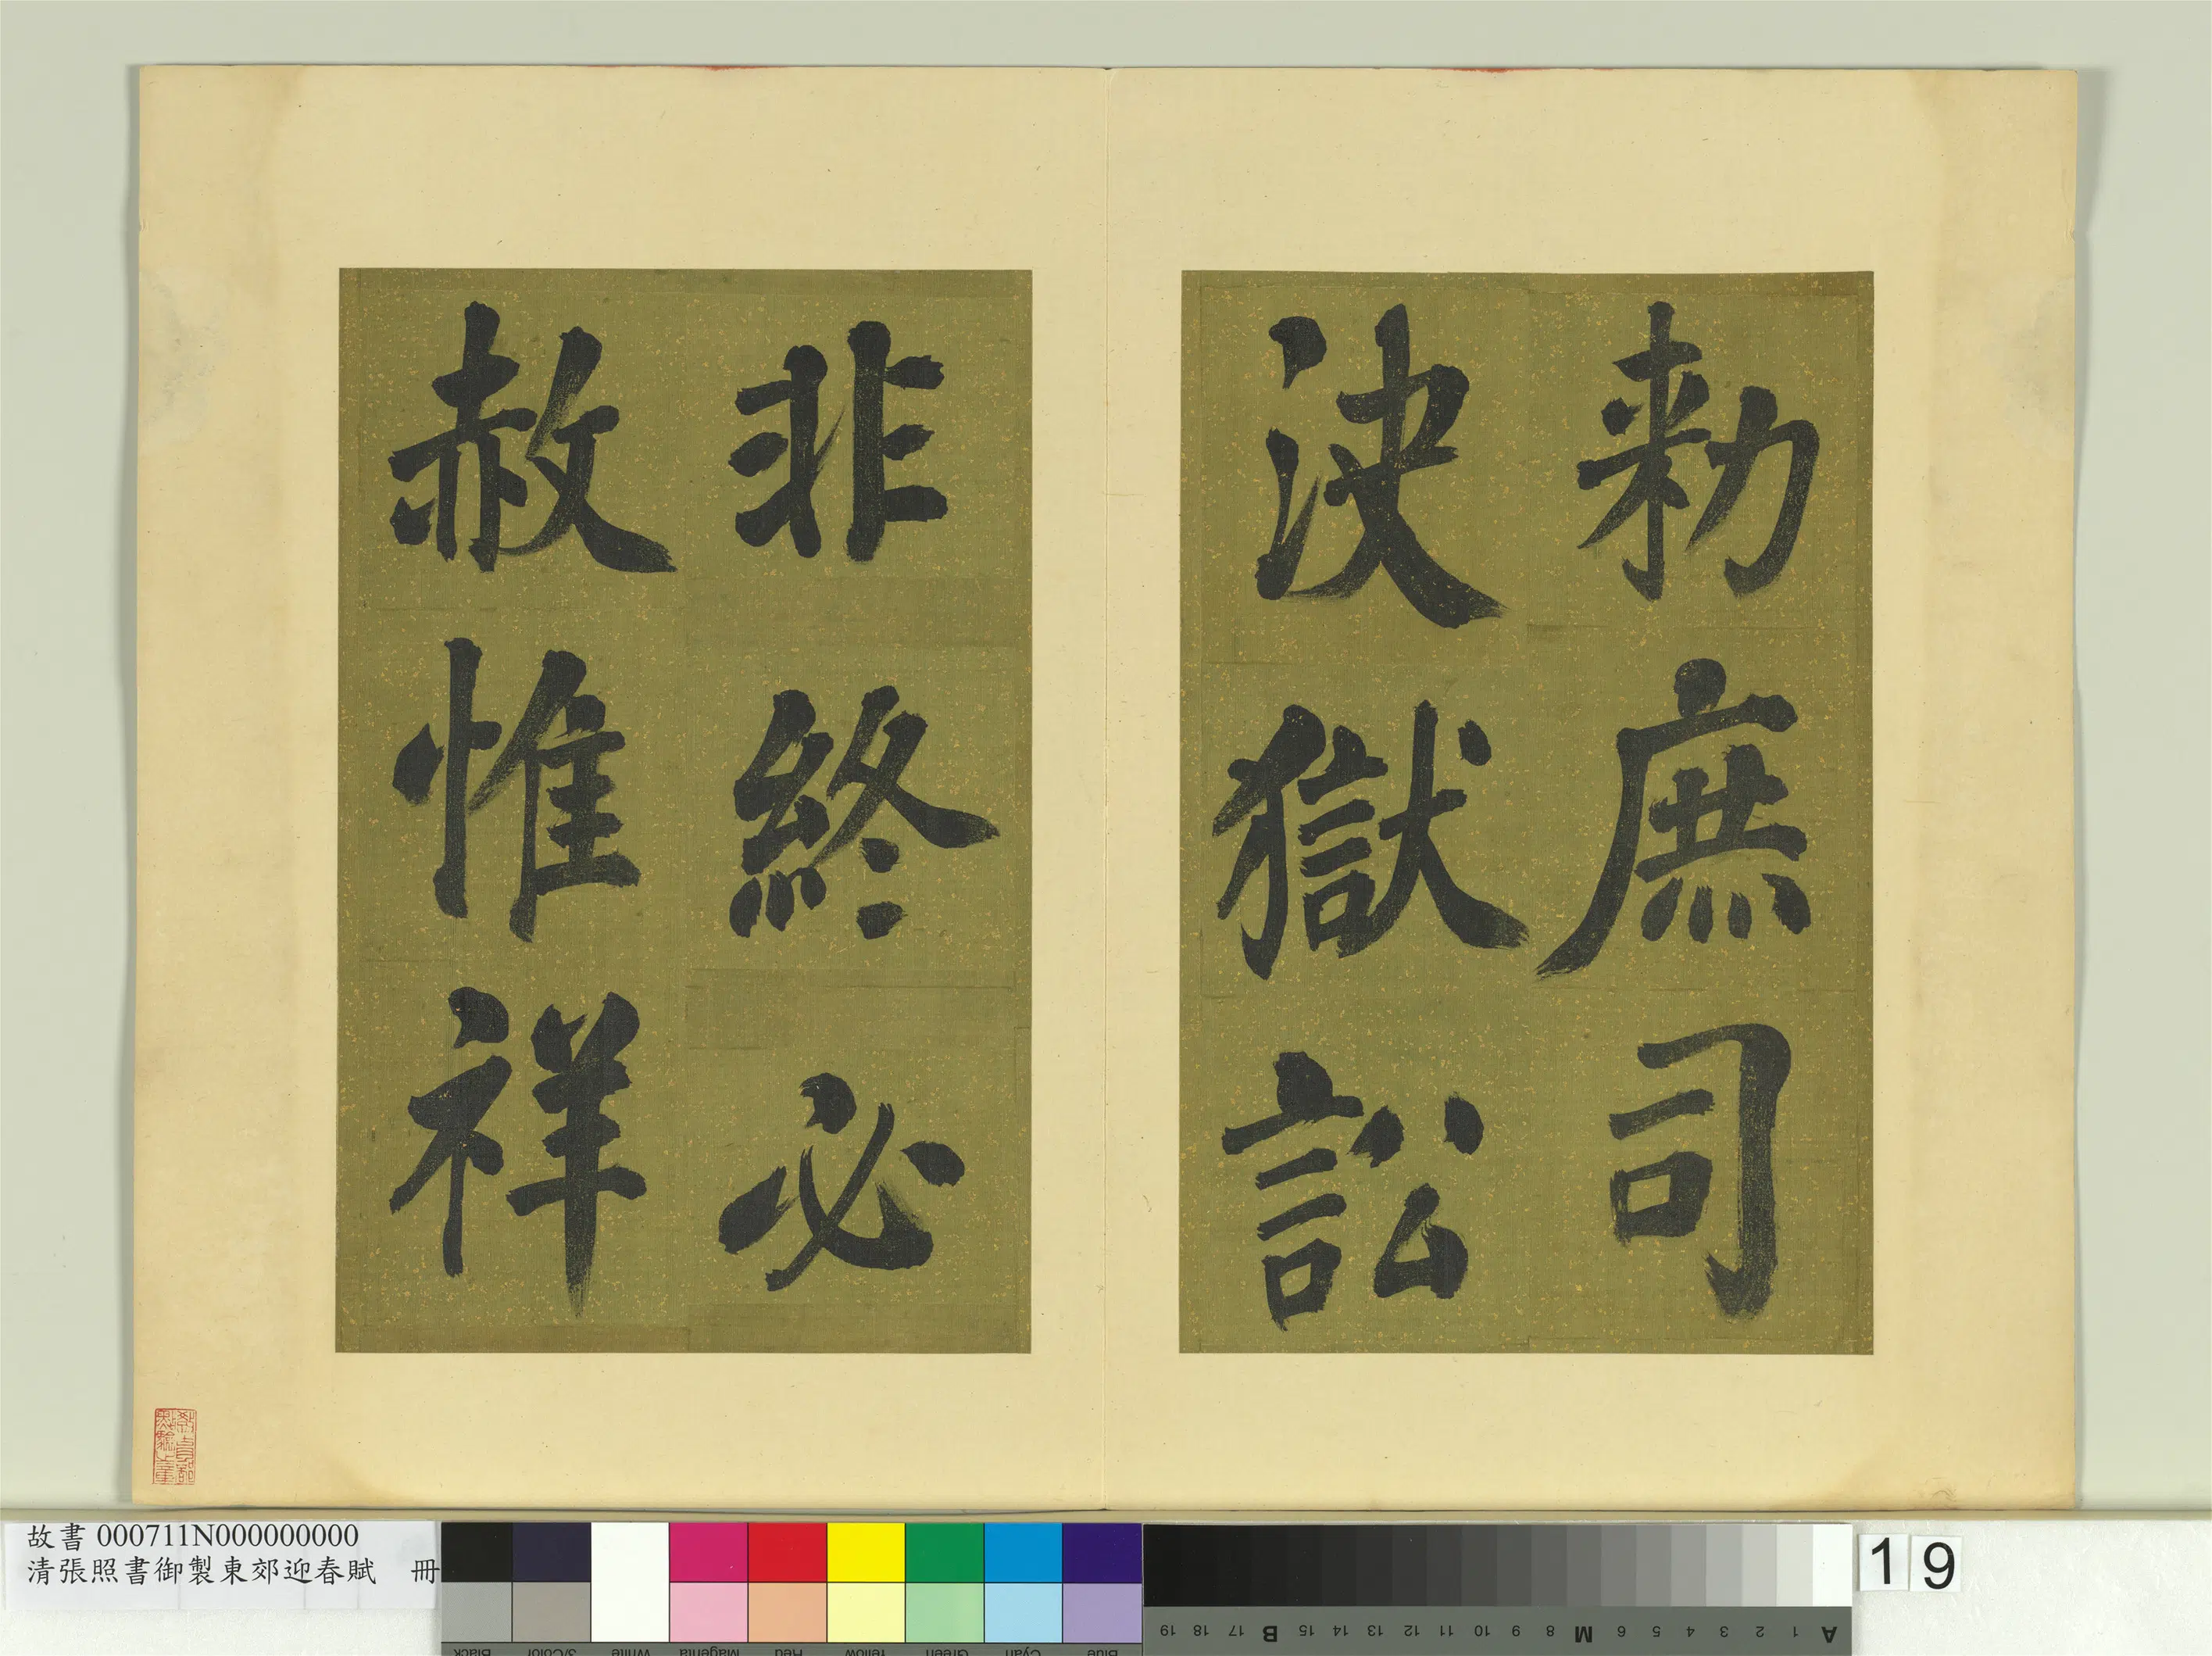 勑庶司
決獄訟
非終必
赦惟祥
故書 000711N000000000
清張照書御製東郊迎春賦 冊
19
Black 3/Color White Magenta Red Yellow Green Cyan Blue
19 18 17 B 15 14 13 12 11 10 9 8 M 6 5 4 3 2 1 A